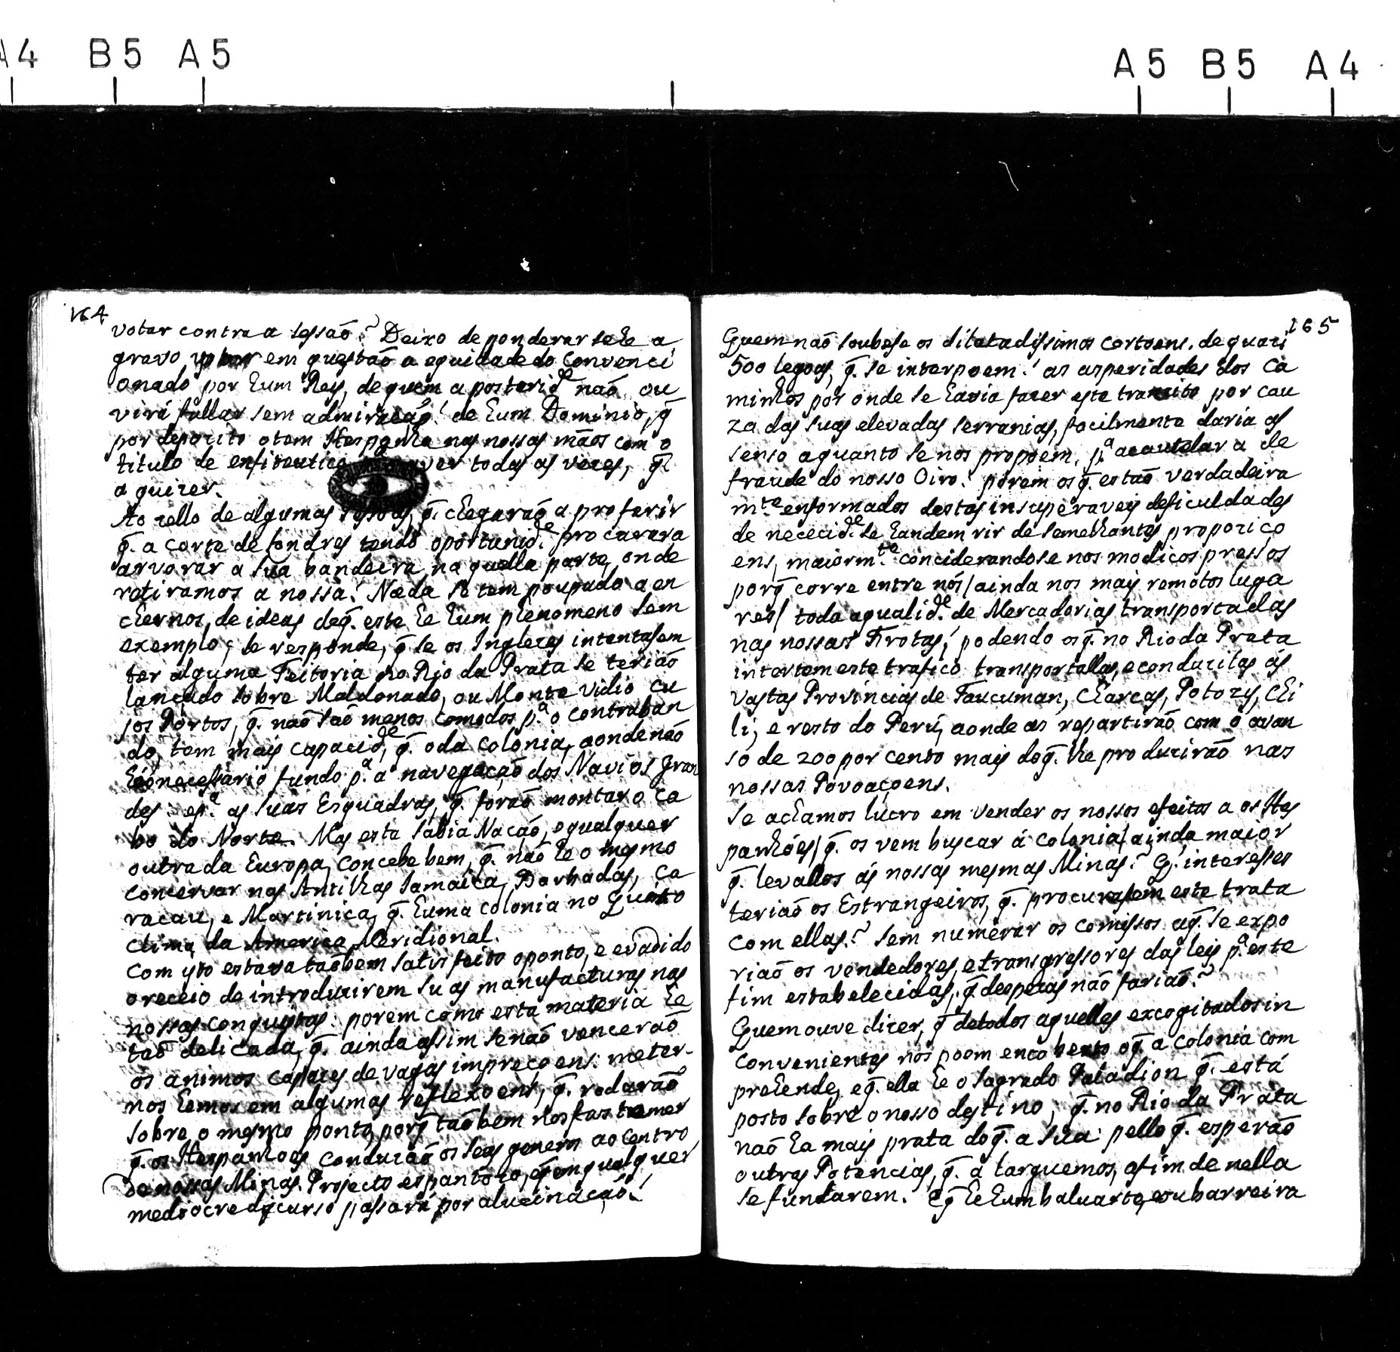 A4 B5 A5
A5 B5 A4
164
votar contra a sessaõ? Deixo de ponderar se he a
gravo em questaõ a equidade do Convenci
onado por hum Rey, de quem a posterid.e naõ ou
virá fallar sem admiraçaõ! de hum Dominio, q̃
por deposito o tem Hespanha nas nossas maõs com o
titulo de enfiteutico ver todas as vezes, q̃
a quizer.
Ao zello de algumas q̃. chegaraõ a proferir
q̃. a Corte de Londres tendo oportunid.e procurara
arvorar a sua bandeira naquella parte, onde
retiramos a nossa! Nada se tem poupado a en
chernos de ideas de q̃. este he hum phenomeno sem
exemplo; se responde, q̃ se os Inglezes intentasem
ter alguma Feitoria no Rio da Prata se teriaõ
lançado sobre Maldonado, ou Monte Vidio cu
jos Portos, q̃. naõ saõ menos comodos p.a o contraban
do, tem mais capacid.e, q̃. o da Colonia, aonde naõ
he o necessario fundo p.a a navegaçaõ dos Navios gran
des e p.a as suas Esquadras, q̃. foraõ montar o Ca
bo do Norte. Mas esta sabia Naçaõ, e qualquer
outra da Europa, concebe bem, q̃. naõ he o mesmo
concervar nas Antilhas Jamaica, Barbadas, Ca
racau, e Martinica, q̃. huma colonia no Quinto
clima da America Meridional.
Com isto estava taõbem satisfeito o ponto, e evadido
o receio de introduzirem suas manufacturas nas
nossas conquistas: porem como esta materia he
taõ delicada, q̃. ainda assim se naõ venceraõ
os animos capazes de vagas impreçoens: meter-
nos hemos em algumas reflexoens, q̃. rodaraõ
sobre o mesmo ponto, porq̃ taõbem nos faz temer
q̃. os Hespanhoes conduzaõ os seos generos ao Centro
de nossas Minas. Projecto espantozo, q̃ em qualquer
mediocre discurso passará por alucinaçaõ!
165
Quem naõ soubese os dilatadissimos certoens, de quazi
500 legoas, q̃. se interpoem: as asperidades dos Ca
minhos por onde se havia fazer este tranzito por cau
za das suas elevadas serranias, facilmente daria as
senso a quanto se nos propoem, p.a acautelar a de
fraude do nosso Oiro: porem os q̃. estaõ verdadeira
m.te enformados destas insuperaveis deficuldades
de nececid.e se handem rir de semelhantes propozico
ens, maiorm.te conciderandose nos modicos pressos
porq̃ corre entre nós/ainda nos mais remotos luga
res/ toda a qualid.e de Mercadorias transportadas
nas nossas Frotas; podendo os q̃. no Rio da Prata
intertem este trafico transportallas, e conduzilas ás
vastas Provincias de Taucuman, Charcas, Potozy, Chi
li, e resto do Perú, aonde as repartiraõ com o avan
so de 200 por cento mais do q̃. lhe produziraõ nas
nossas Povoaçoens.
Se achamos lucro em vender os nossos efeitos a os Hes
panhóes/ q̃. os vem buscar á Colonia/ ainda maior
q̃. levallos ás nossas mesmas Minas? Q̃. interesses
teriaõ os Estrangeiros, q̃. procurasem este trata
com ellas? sem numerar os comissos aq̃. se expo
riaõ os vendedores, e transgressores das leis p.a este
fim estabelecidas, q̃ despezas naõ fariaõ?
Quem ouve dizer, q̃ de todos aquelles excogitados in
convenientes nos poem encobertos o q̃. a Colonia com
prehende, e q̃. ella he o sagrado Paladion q̃. está
posto sobre o nosso destino; q̃. no Rio da Prata
naõ ha mais prata do q̃. a sua: pello q̃. esperaõ
outras Potencias, q̃. a larguemos, a fim de nella
se fundarem. E q̃ he hum baluarte, ou barreira